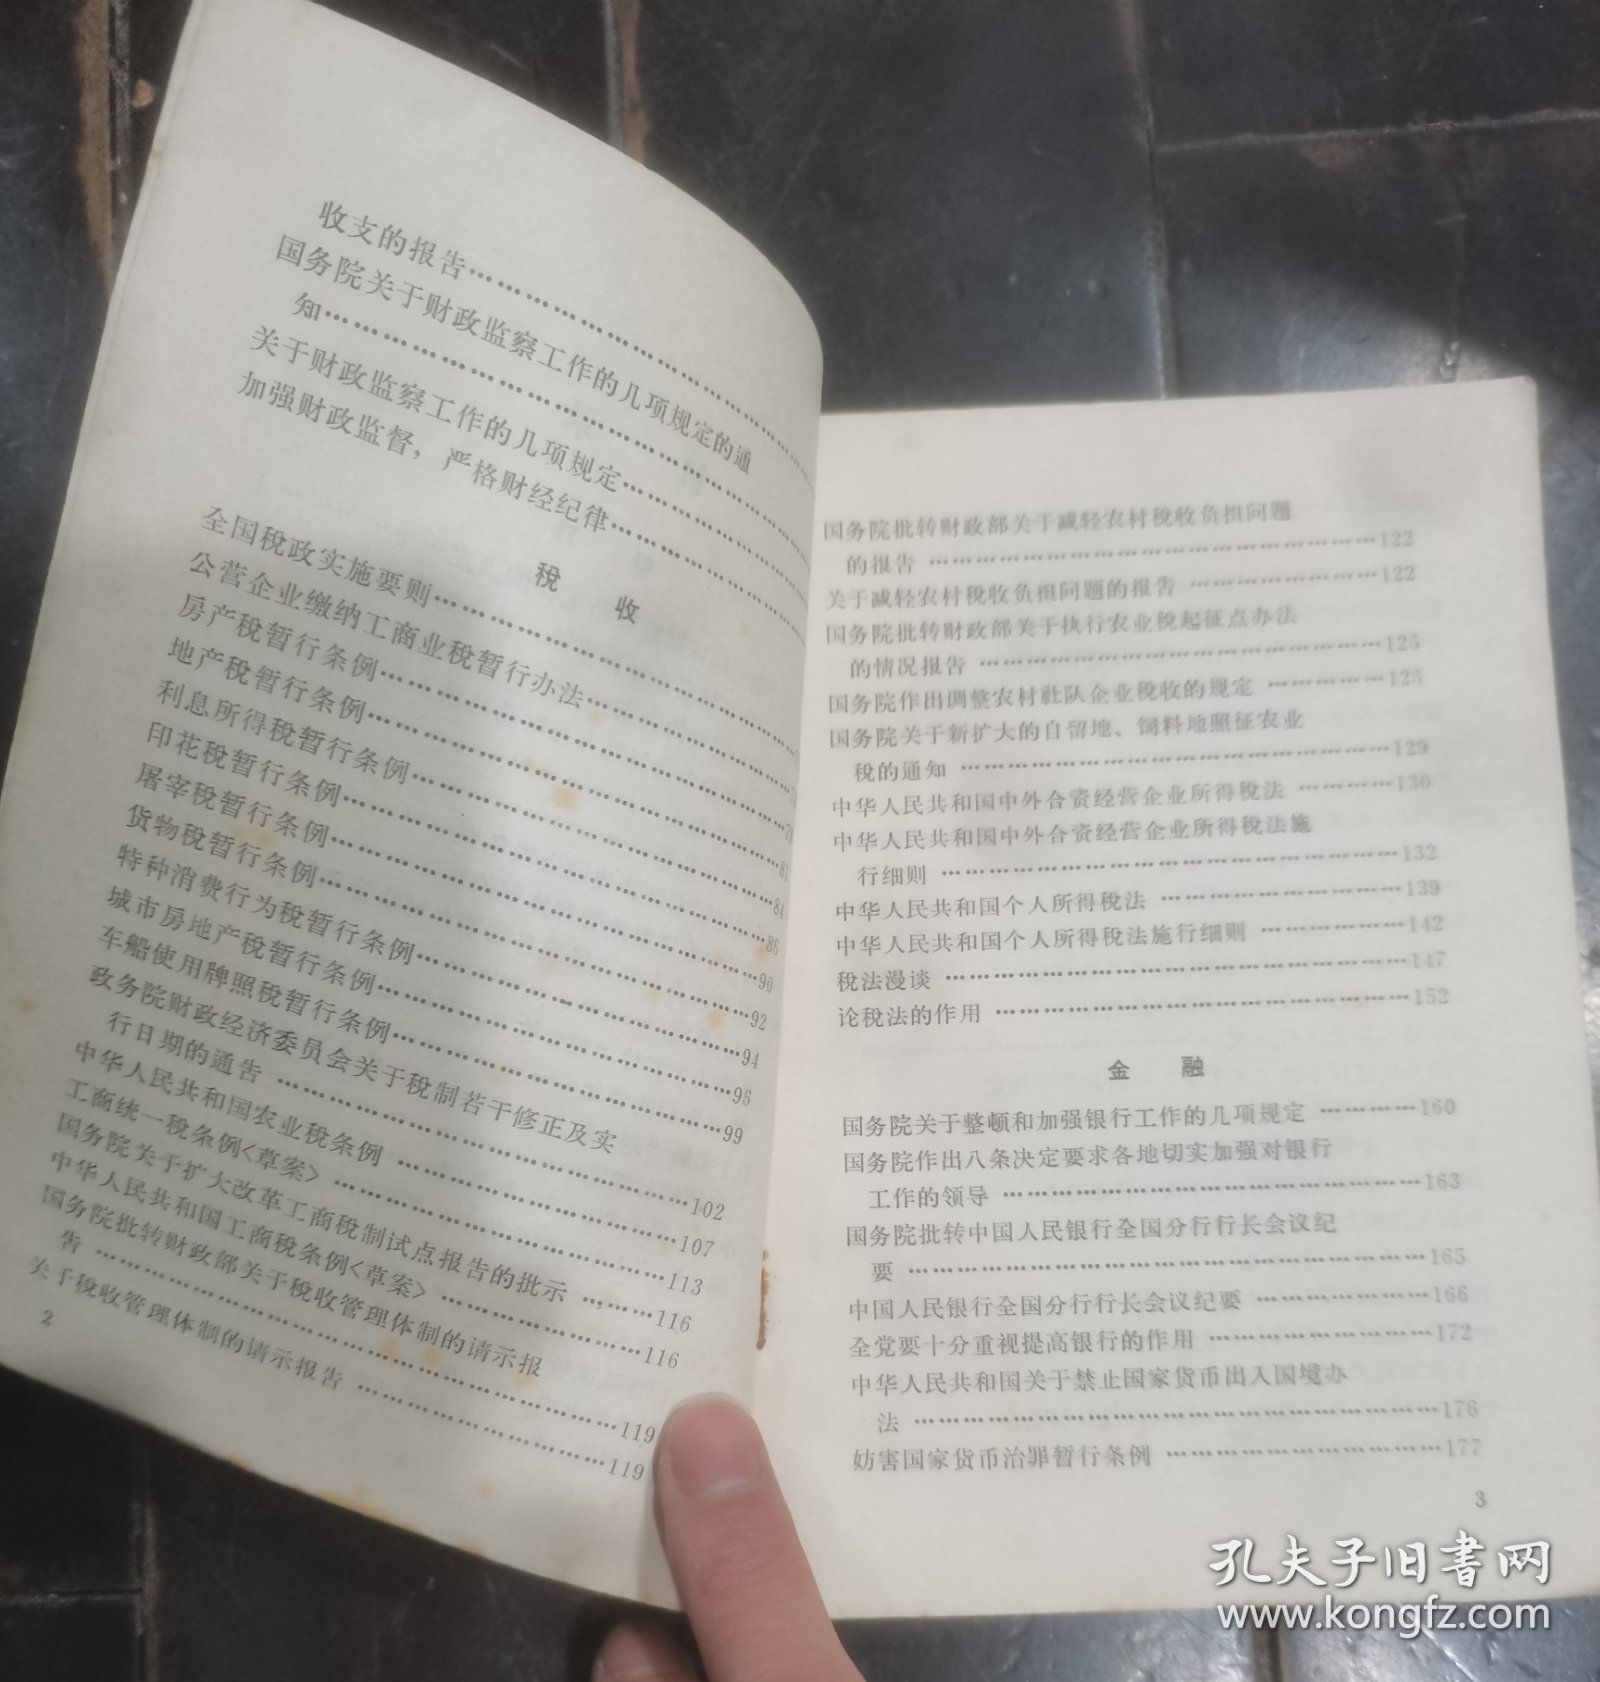 收支的报告……………………………
国务院关于财政监察工作的几项规定的通
知……………………………
关于财政监察工作的几项规定……………………
加强财政监督，严格财经纪律……………………
税 收
全国税政实施要则……………………………
公营企业缴纳工商业税暂行办法……………………
房产税暂行条例……………………………
地产税暂行条例……………………………79
利息所得税暂行条例……………………………81
印花税暂行条例……………………………84
屠宰税暂行条例……………………………86
货物税暂行条例……………………………90
特种消费行为税暂行条例……………………………92
城市房地产税暂行条例……………………………94
车船使用牌照税暂行条例……………………………95
政务院财政经济委员会关于税制若干修正及实
行日期的通告……………………………99
中华人民共和国农业税条例……………………………102
工商统一税条例〈草案〉……………………………107
国务院关于扩大改革工商税制试点报告的批示………113
中华人民共和国工商税条例〈草案〉……………………116
国务院批转财政部关于税收管理体制的请示报
告……………………………119
关于税收管理体制的请示报告……………………119
2
国务院批转财政部关于减轻农村税收负担问题
的报告……………………………122
关于减轻农村税收负担问题的报告………………122
国务院批转财政部关于执行农业税起征点办法
的情况报告……………………………125
国务院作出调整农村社队企业税收的规定……………125
国务院关于新扩大的自留地、饲料地照征农业
税的通知……………………………129
中华人民共和国中外合资经营企业所得税法…………130
中华人民共和国中外合资经营企业所得税法施
行细则……………………………132
中华人民共和国个人所得税法……………………139
中华人民共和国个人所得税法施行细则……………142
税法漫谈……………………………147
论税法的作用……………………………152
金 融
国务院关于整顿和加强银行工作的几项规定…………160
国务院作出八条决定要求各地切实加强对银行
工作的领导……………………………163
国务院批转中国人民银行全国分行行长会议纪
要……………………………165
中国人民银行全国分行行长会议纪要………………166
全党要十分重视提高银行的作用……………………172
中华人民共和国关于禁止国家货币出入国境办
法……………………………176
妨害国家货币治罪暂行条例……………………177
3
孔夫子旧书网
www.kongfz.com